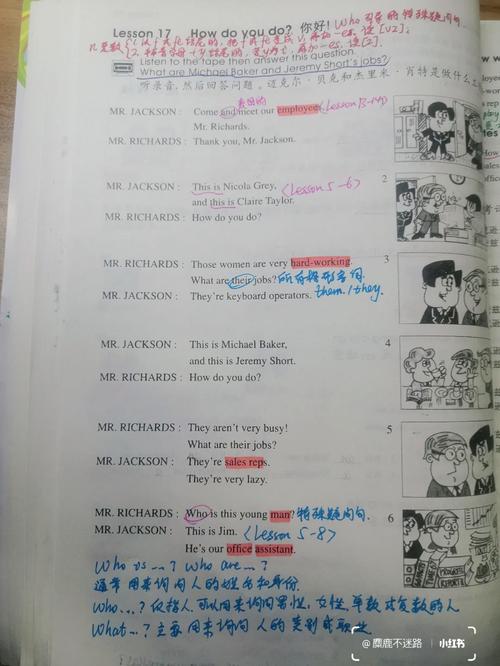 Lesson 17 How do you do? 你好! Who 引导的特殊疑问句.
Listen to the tape then answer this question.
What are Michael Baker and Jeremy Short's jobs?
听录音,然后回答问题。迈克尔·贝克和杰里米·肖特是做什么工
表目的
MR. JACKSON: Come and meet our employees (Lesson 13-14)
Mr. Richards.
MR. RICHARDS: Thank you, Mr. Jackson.
MR. JACKSON: This is Nicola Grey, (Lesson 5-6) 2
and this is Claire Taylor.
MR. RICHARDS: How do you do?
MR. RICHARDS: Those women are very hard-working. 3
What are their jobs? 所有格形容词.
MR. JACKSON: They're keyboard operators. them / they.
MR. JACKSON: This is Michael Baker, 4
and this is Jeremy Short.
MR. RICHARDS: How do you do?
MR. RICHARDS: They aren't very busy! 5
What are their jobs?
MR. JACKSON: They're sales reps.
They're very lazy.
MR. RICHARDS: Who is this young man? 特殊疑问句. 6
MR. JACKSON: This is Jim. (Lesson 5-8)
He's our office assistant.
Who is ...? Who are ...?
通常用来询问人的姓名和身份.
Who...? 仅指人,可以用来询问男性、女性、单数或复数的人
What...? 主要用来询问人的类别或职业
麋鹿不迷路 小红书